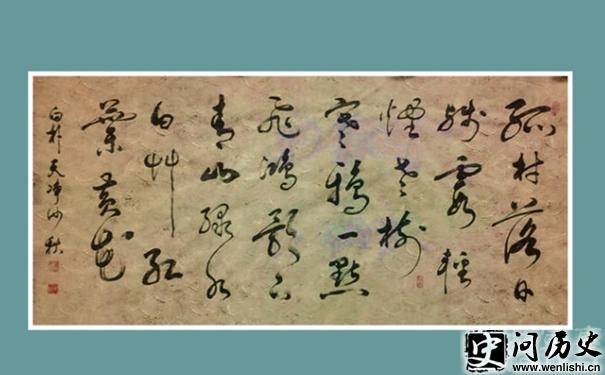 孤村落日
残霞輕
煙老树
寒鴉一點
飛鸿影下
青山绿水
白艸红
葉黄花
白朴天净沙秋
问历史
www.wenlishi.cn